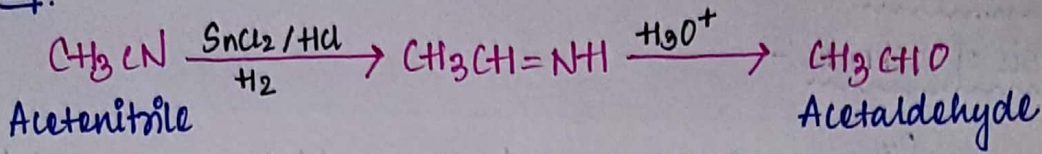 CH3CN SnCl2/HCl H2 → CH3CH=NH H3O+ → CH3CHO
Acetenitrile Acetaldehyde